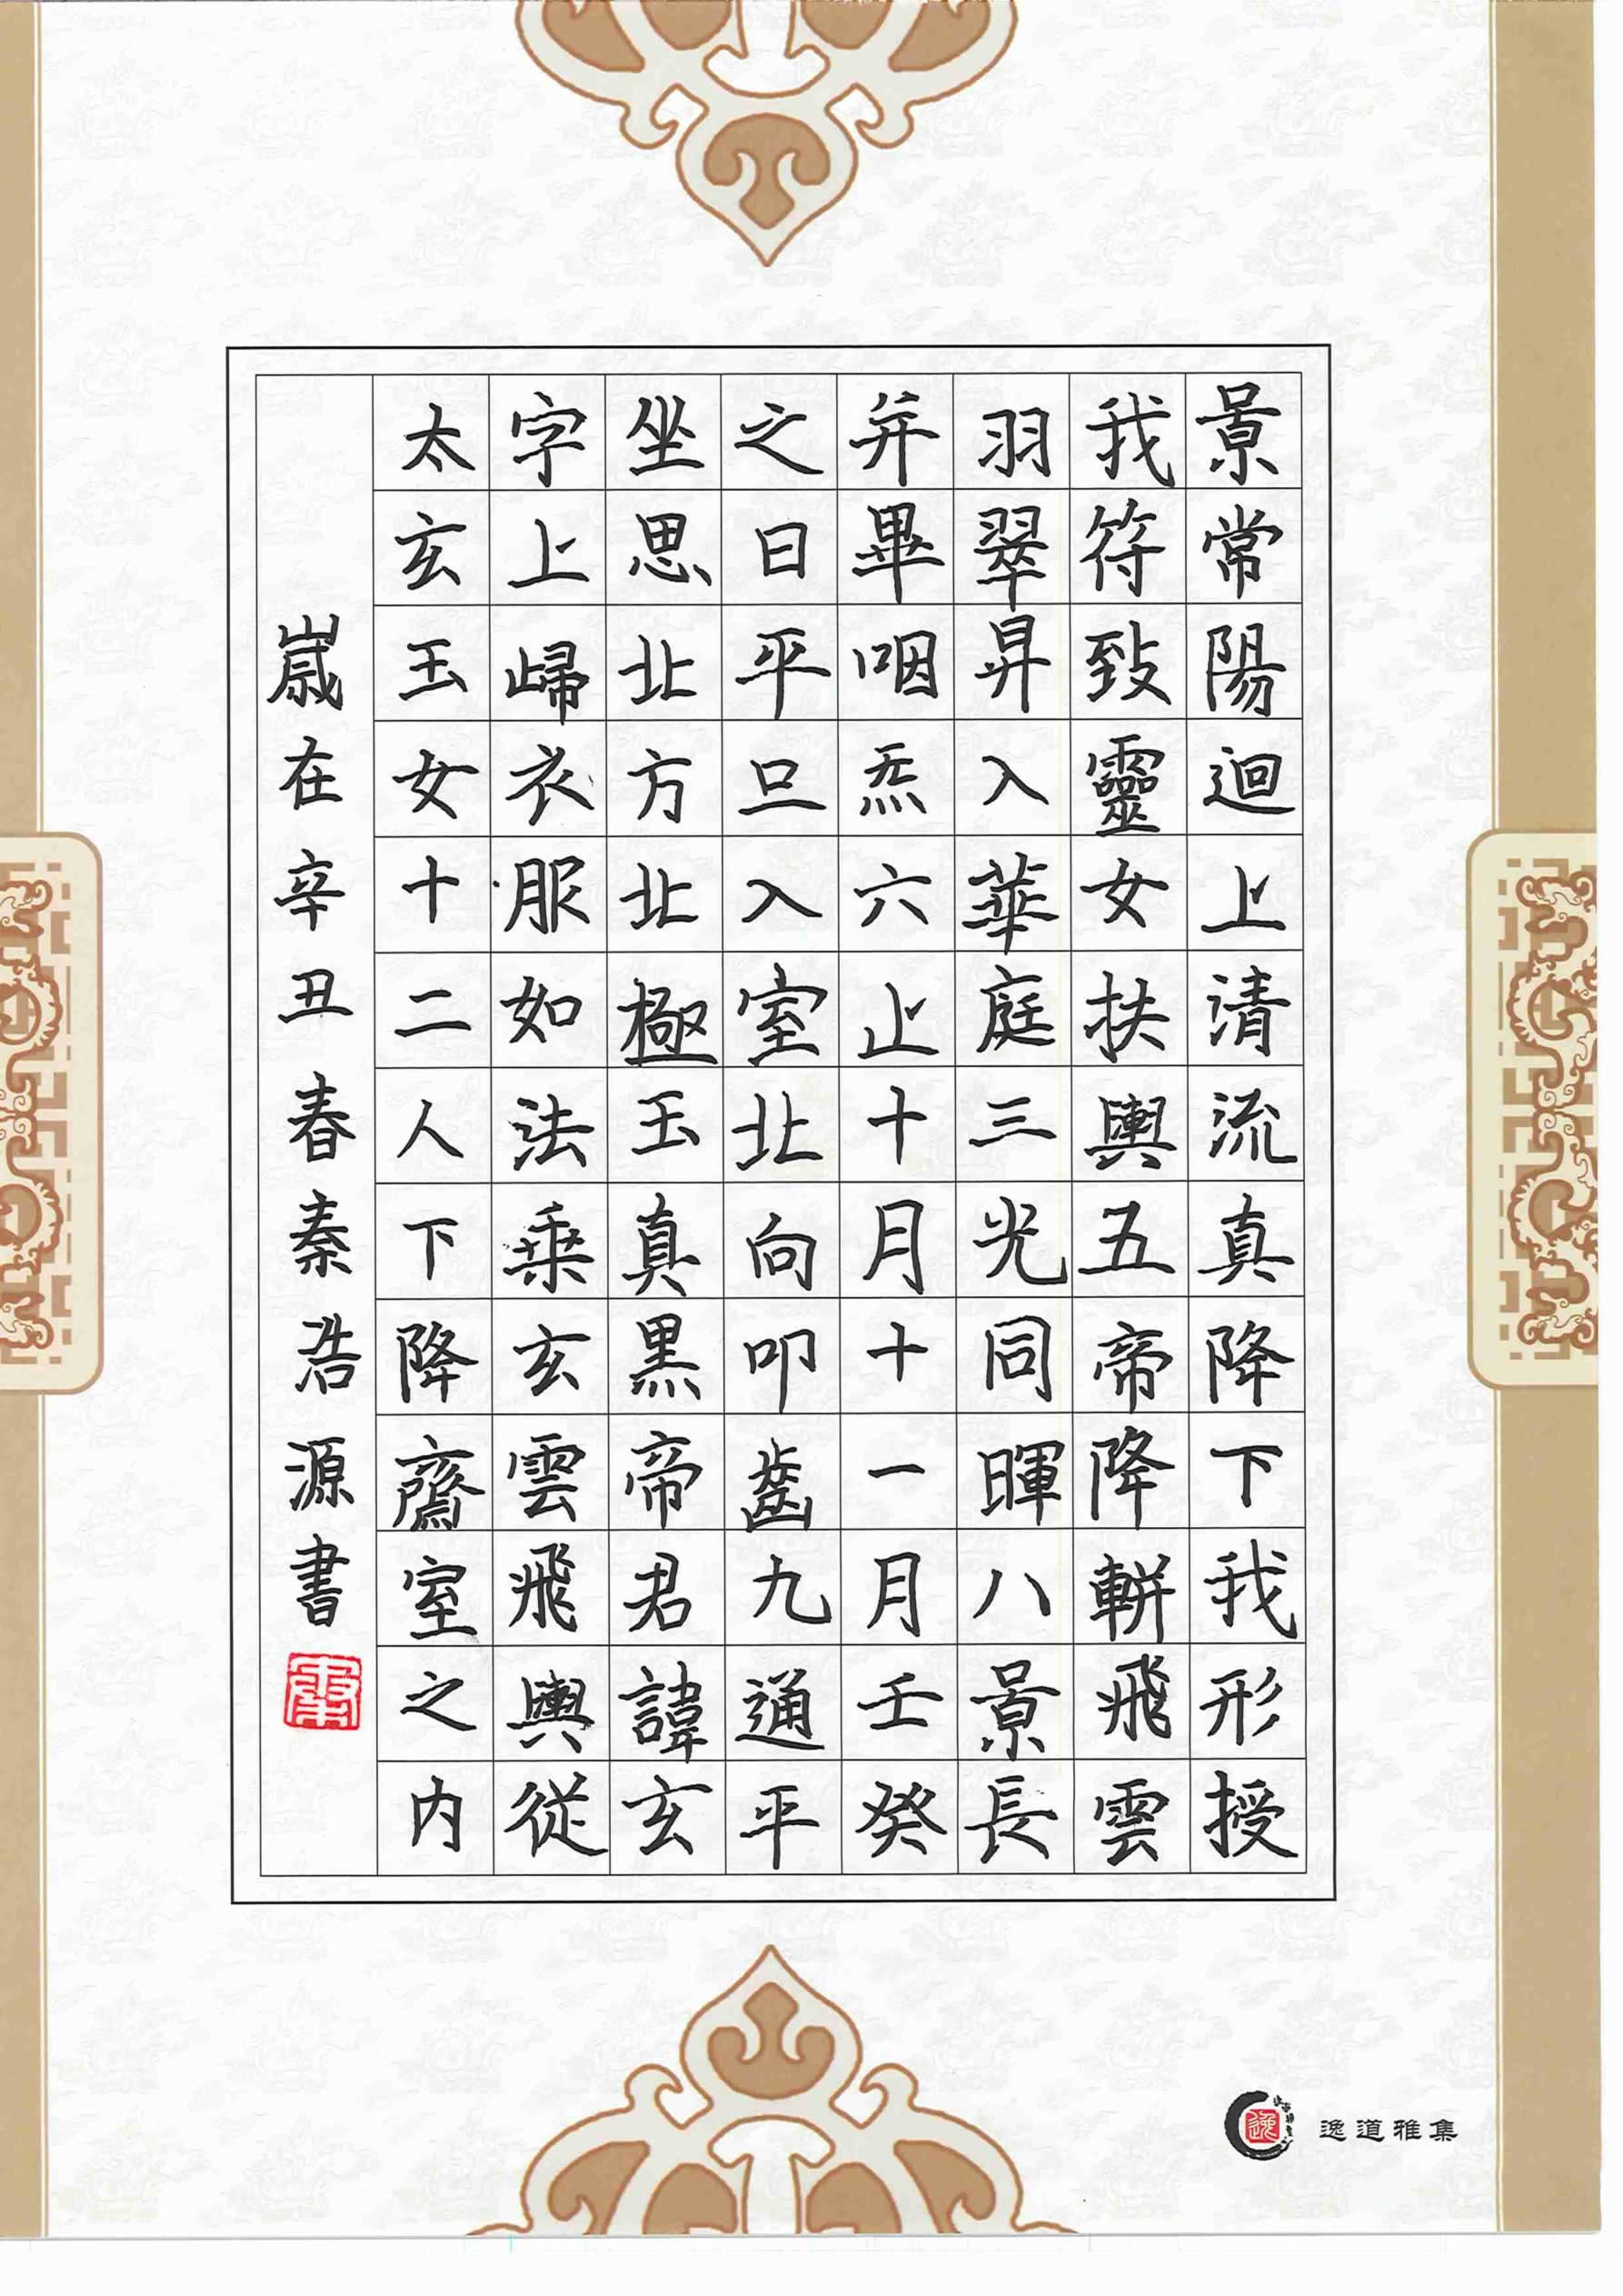 景常陽迴上清流真降下我形授
我符致靈女扶輿五帝降軿飛雲
羽翠昇入華庭三光同暉八景長
并畢咽炁六止十月十一月壬癸
之日平旦入室北向叩齒九通平
坐思北方北極玉真黑帝君諱玄
字上歸衣服如法乘玄雲飛輿從
太玄玉女十二人下降齋室之内
歲在辛丑春秦浩源書
逸道雅集